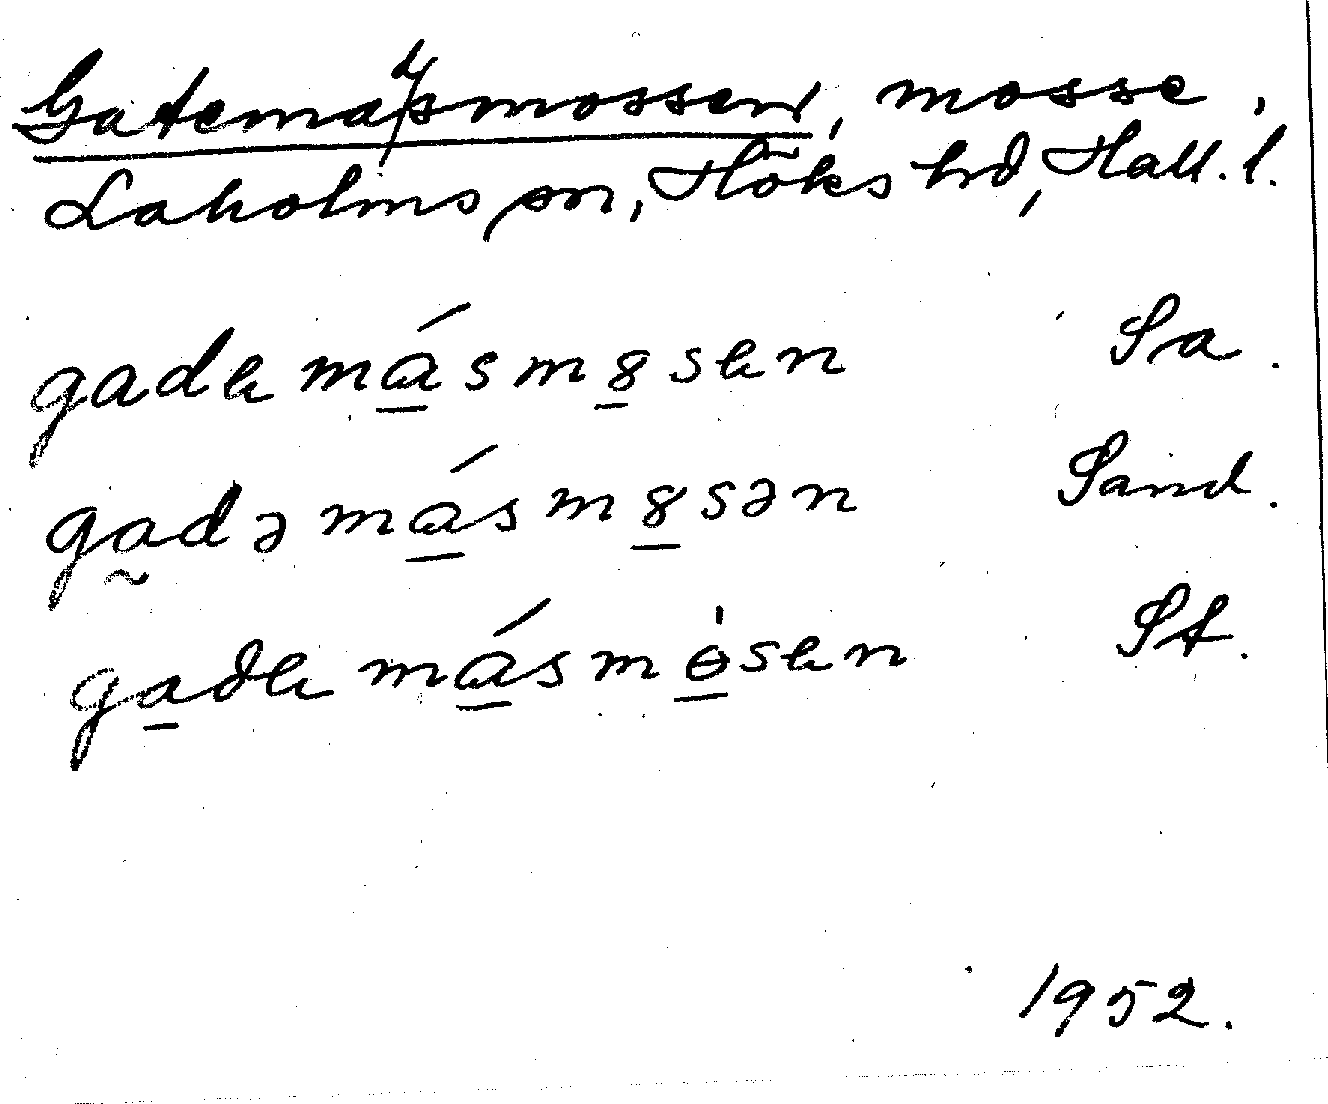 Gatemadsmossen, mosse.
Laholms sn, Höks hd, Hall. l.
gade másm8sen Sa.
gadə másm8sən Sand.
gaðe másmɵ́sen St.
1952.